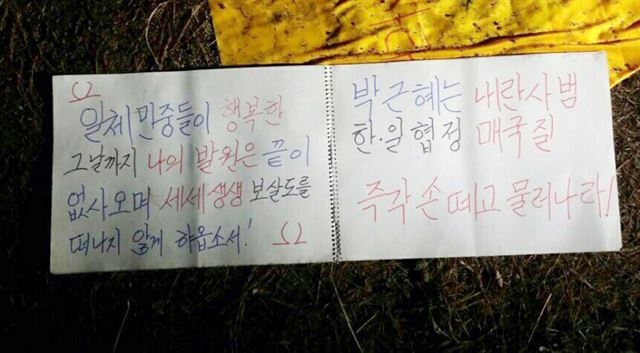 Ω
일체 민중들이 행복한
그날까지 나의 발원은 끝이
없사오며 세세생생 보살도를
떠나지 않게 하옵소서! Ω
박근혜는 내란사범
한·일 협정 매국질
즉각 손 떼고 물러나라!